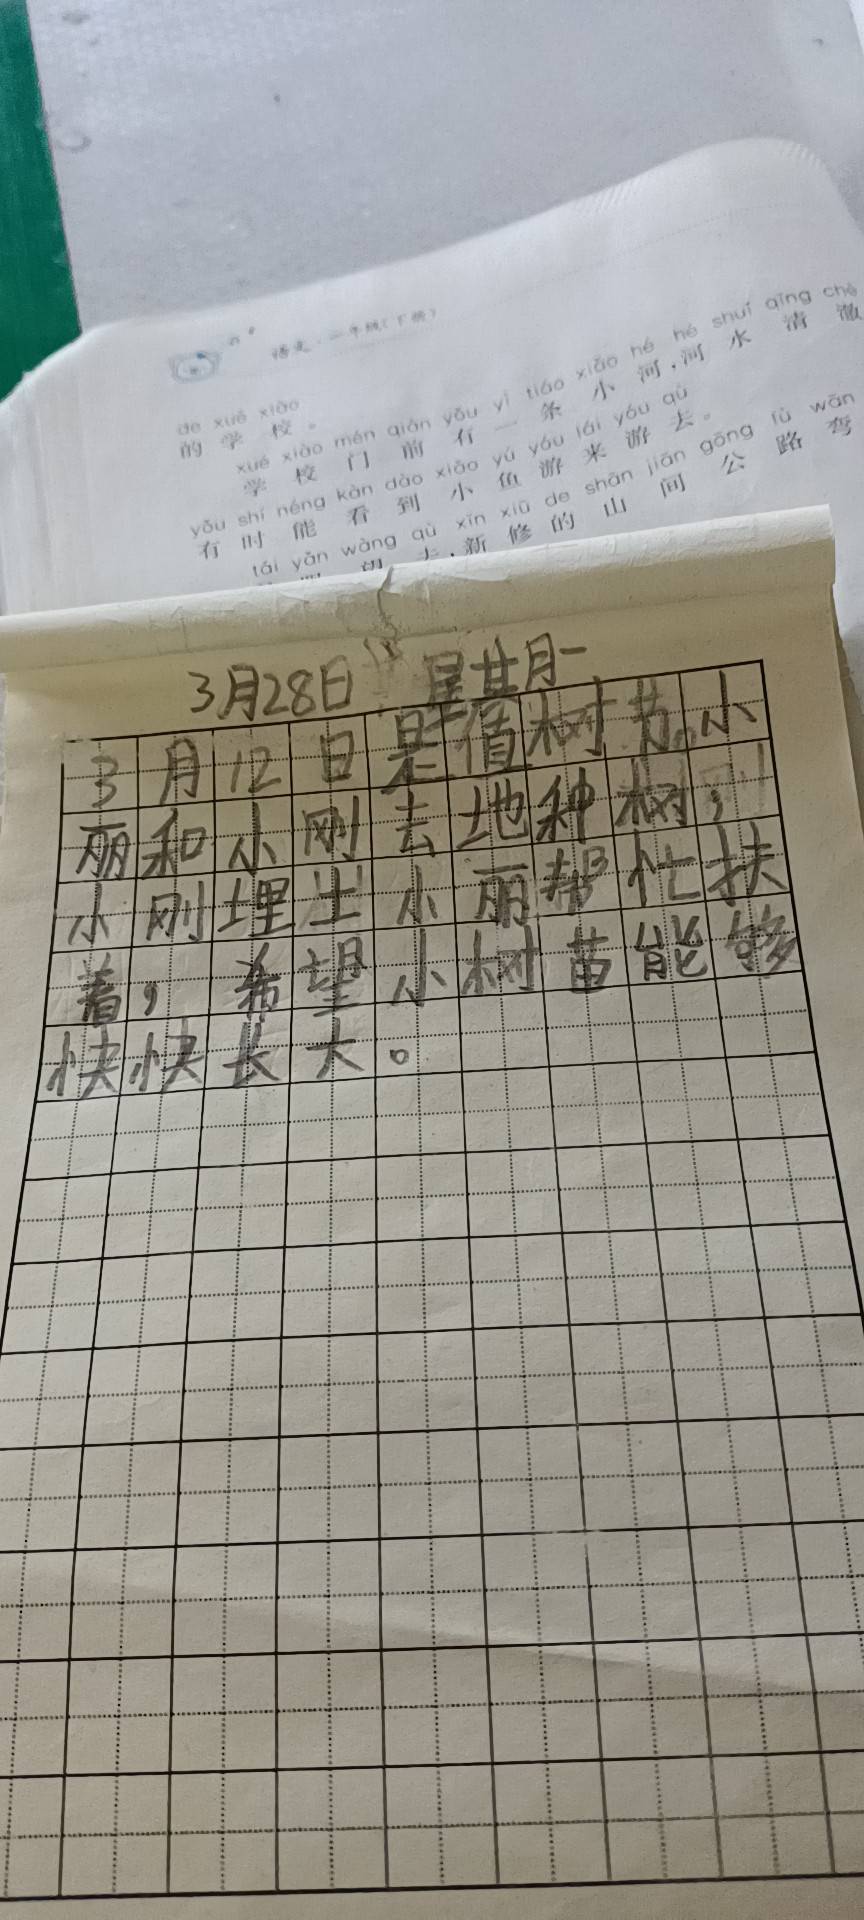 语文·二年级(下册)
de xué xiào
的学校。
xué xiào mén qián yǒu yì tiáo xiǎo hé hé shuǐ qīng chè
学校门前有一条小河,河水清澈
yǒu shí néng kàn dào xiǎo yú yóu lái yóu qù
有时能看到小鱼游来游去。
tái yǎn wàng qù xīn xiū de shān jiān gōng lù wān
望去,新修的山间公路弯
3月28日 星期一
3月12日是值树节。小
丽和小刚去地种树,
小刚埋土小丽帮忙扶
着,希望小树苗能够
快快长大。